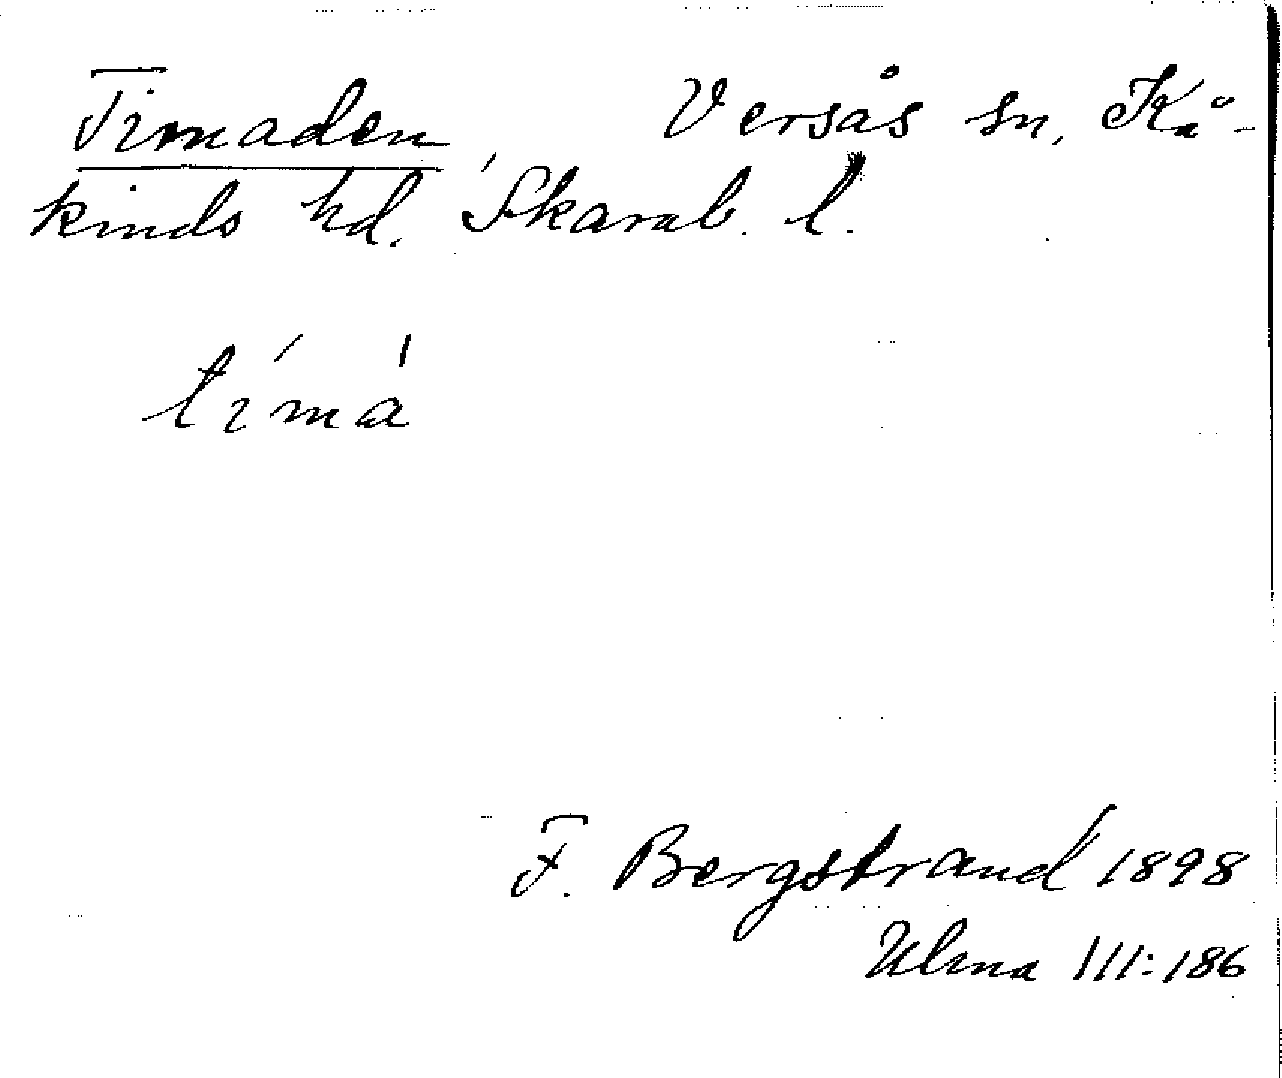 Timaden, Versås sn, Kå-
kinds hd. Skarab. l.
tìmá
F. Bergstrand 1898
Ulma III:186